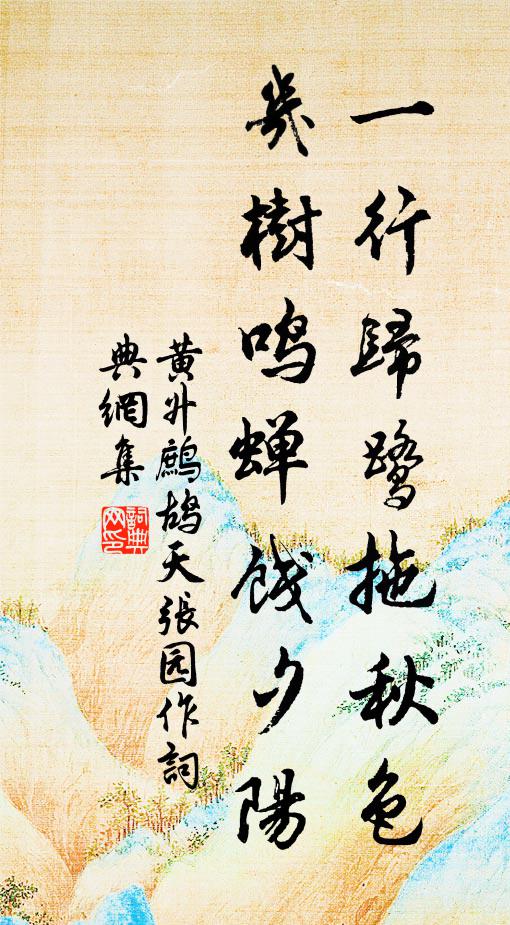 一行歸鷺拖秋色
幾樹鳴蟬餞夕陽
黄升鷓鴣天張园作詞
典網集
詞典
网印